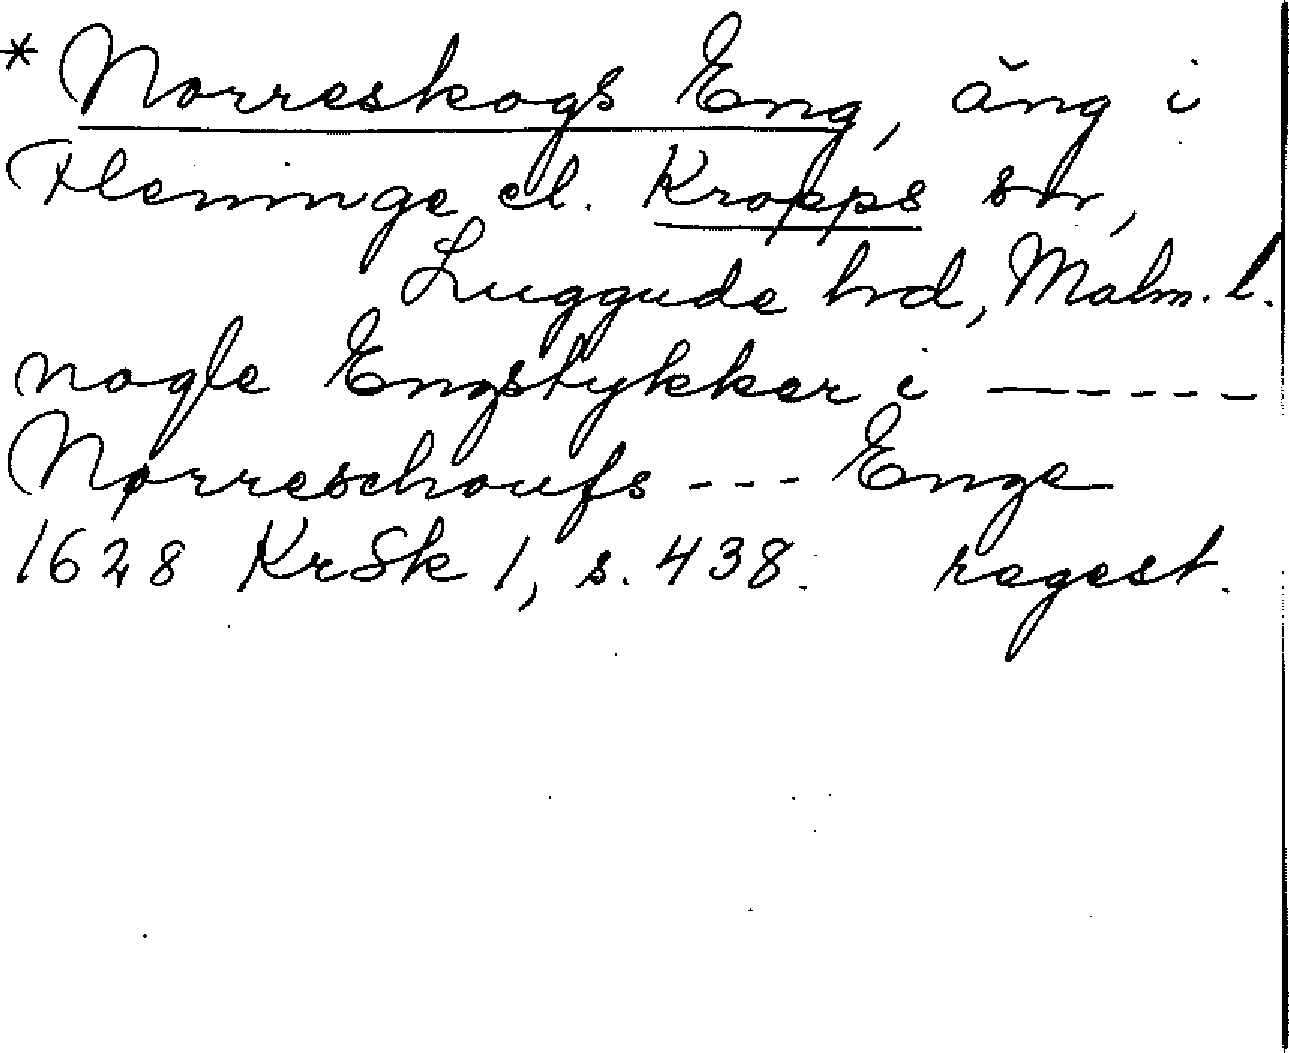 * Norreskogs Eng, äng i
Fleninge el. Kropps sn,
Luggude hd, Malm. l.
nogle Engstykker i — - - - -
Nørreschoufs - - - Enge
1628 KrSk 1, s. 438. regest.